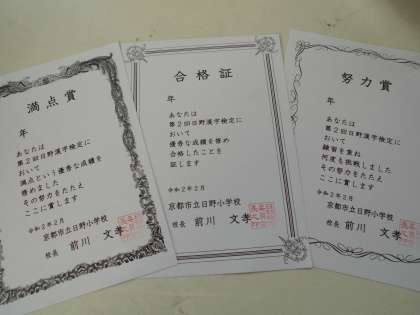 満点賞
年
あなたは
第2回日野漢字検定に
おいて
満点という優秀な成績を
修めました
その努力をたたえ
ここに賞します
令和2年2月
京都市立日野小学校
校長 前川 文孝
合格証
年
あなたは
第2回日野漢字検定に
おいて
優秀な成績を修め
合格したことを
証します
令和2年2月
京都市立日野小学校
校長 前川 文孝
努力賞
年
あなたは
第2回日野漢字検定に
おいて
練習を重ね
何度も挑戦しました
その努力をたたえ
ここに賞します
令和2年2月
京都市立日野小学校
校長 前川 文孝